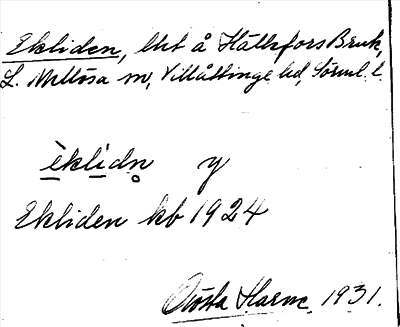 Ekliden, lht å Hälleforsbruk,
L. Mellösa sn, Villåttinge hd, Sörml. l.
èklídn y
Ekliden kb 1924
Gösta Harne 1931.